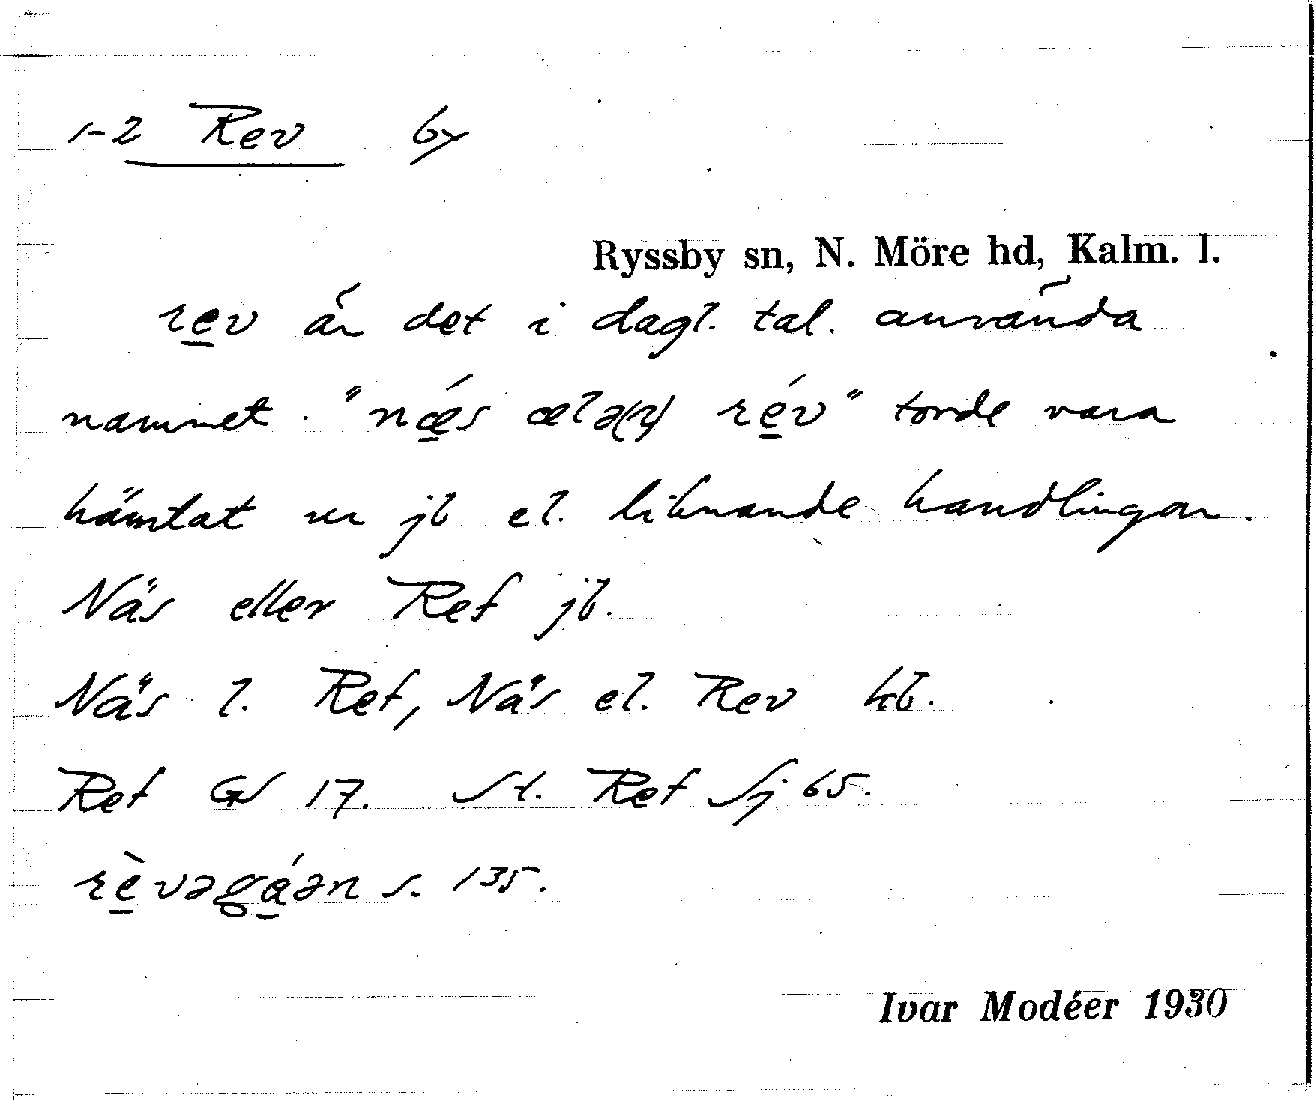 1-2 Rev by
Ryssby sn, N. Möre hd, Kalm. l.
re̲v är det i dagl. tal. använda
namnet. "nǽ̲s ælə(r) ré̲v" torde vara
hämtat ur jb el. liknande handlingar.
Näs eller Ref jb.
Näs l. Ref, Näs el. Rev hb.
Ref GS 17. St. Ref Sj 65.
rè̲vəgá̲ən s. 135.
Ivar Modéer 1930